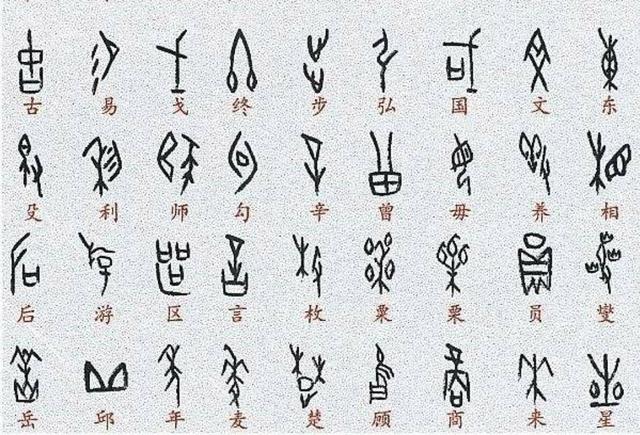 古 易 戈 终 步 弘 国 文 东
殳 利 师 勾 辛 曾 毋 养 相
后 游 区 言 枚 粟 栗 员 燮
岳 邱 年 麦 楚 顾 商 来 星